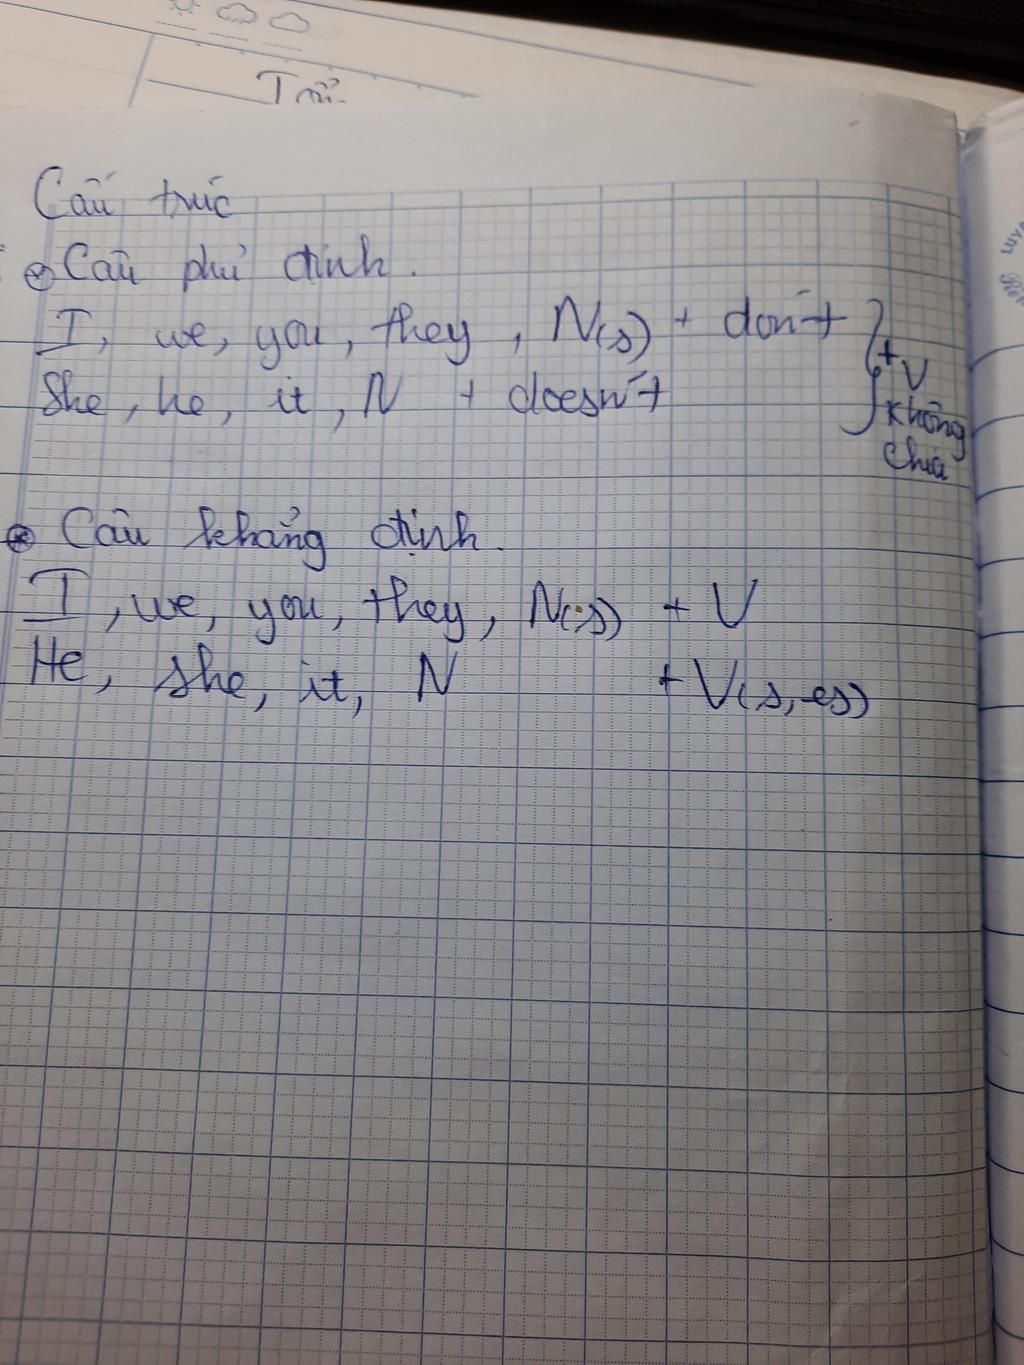 Cấu trúc
Câu phủ định.
I, we, you, they, N(s) + don't
She, he, it, N + doesn't
+ V
không
chia
Câu khẳng định.
I, we, you, they, N(s) + V
He, she, it, N + V(s, es)